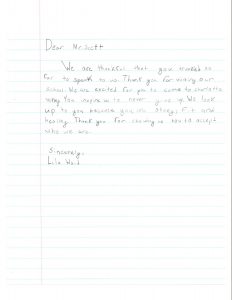 Dear Mr. Scott
We are thankful that you traveled so
far to speak to us. Thank you for visiting our
School. We are excited for you to come to charlotte
You inspire us to never give up. We look
up to you because you are strong, Fit and
healthy. Thank you for showing us how to accept
who we are.
Sincerely,
Lila